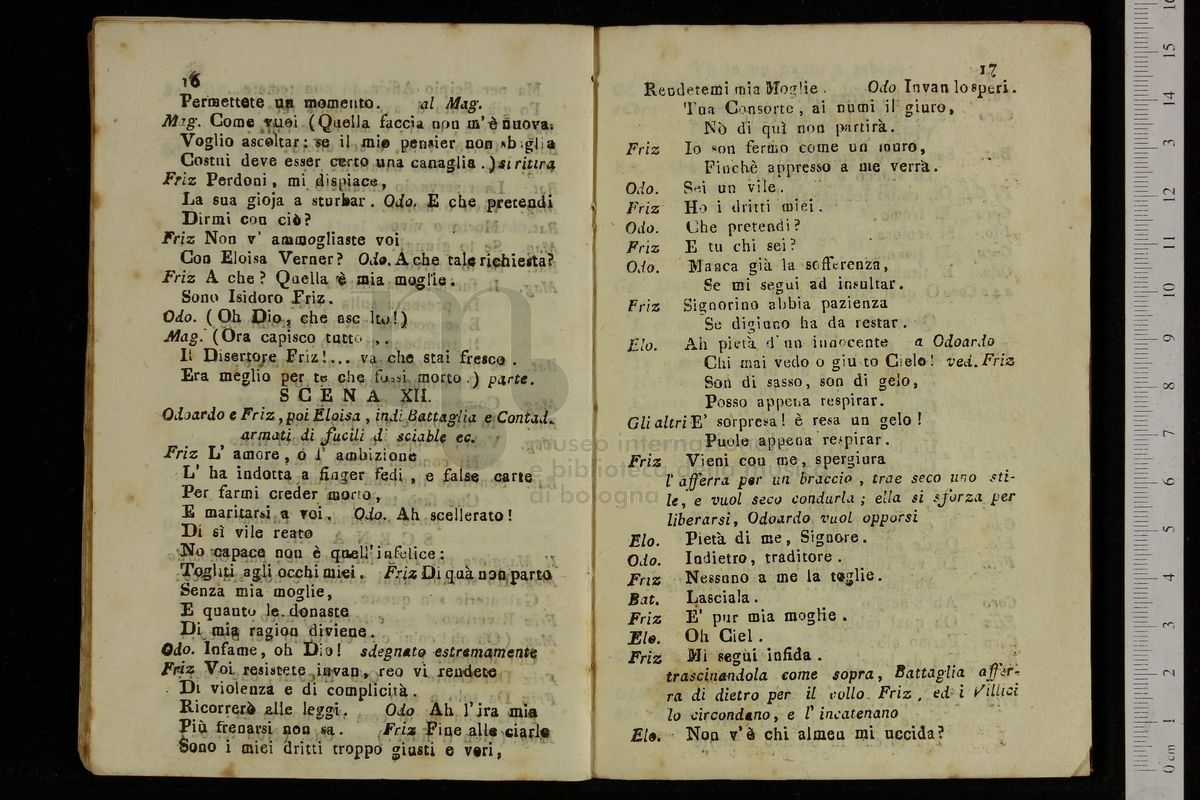 16
Permettete un momento. al Mag.
Mag. Come vuoi (Quella faccia non m'è nuova.
Voglio ascoltar: se il mio pensier non sbaglia
Costui deve esser certo una canaglia.) si ritira
Friz Perdoni, mi dispiace,
La sua gioja a sturbar. Odo. E che pretendi
Dirmi con ciò?
Friz Non v' ammogliaste voi
Con Eloisa Verner? Odo. A che tale richiesta?
Friz A che? Quella è mia moglie.
Sono Isidoro Friz.
Odo. (Oh Dio, che asc lto!)
Mag. (Ora capisco tutto ...
Il Disertore Friz!... va che stai fresco.
Era meglio per te che fossi morto.) parte.
SCENA XII.
Odoardo e Friz, poi Eloisa, indi Battaglia e Contad.
armati di fucili di sciable ec.
Friz L' amore, o l' ambizione
L' ha indotta a finger fedi, e false carte
Per farmi creder morto,
E maritarsi a voi. Odo. Ah scellerato!
Di sì vile reato
No capace non è quell' infelice:
Togliti agli occhi miei. Friz Di quà non parto
Senza mia moglie,
E quanto le donaste
Di mia ragion diviene.
Odo. Infame, oh Dio! sdegnato estremamente
Friz Voi resistete invan, reo vi rendete
Di violenza e di complicità.
Ricorrerò alle leggi. Odo Ah l'ira mia
Più frenarsi non sa. Friz Fine alle ciarle
Sono i miei dritti troppo giusti e veri,
17
Rendetemi mia Moglie. Odo Invan lo speri.
Tua Consorte, ai numi il giuro,
Nò di quì non partirà.
Friz Io son fermo come un muro,
Finchè appresso a me verrà.
Odo. Sei un vile.
Friz Ho i dritti miei.
Odo. Che pretendi?
Friz E tu chi sei?
Odo. Manca già la sofferenza,
Se mi segui ad insultar.
Friz Signorino abbia pazienza
Se digiuno ha da restar.
Elo. Ah pietà d'un innocente a Odoardo
Chi mai vedo o giu to Cielo! ved. Friz
Son di sasso, son di gelo,
Posso appena respirar.
Gli altri E' sorpresa! è resa un gelo!
Puole appena respirar.
Friz Vieni con me, spergiura
l'afferra per un braccio, trae seco uno sti-
le, e vuol seco condurla; ella si sforza per
liberarsi, Odoardo vuol opporsi
Elo. Pietà di me, Signore.
Odo. Indietro, traditore.
Friz Nessuno a me la toglie.
Bat. Lasciala.
Friz E' pur mia moglie.
Elo. Oh Ciel.
Friz Mi segui infida.
trascinandola come sopra, Battaglia affer-
ra di dietro per il collo Friz, ed i Villici
lo circondano, e l' incatenano
Elo. Non v'è chi almen mi uccida?
museo internazionale
e biblioteca della musica
di bologna